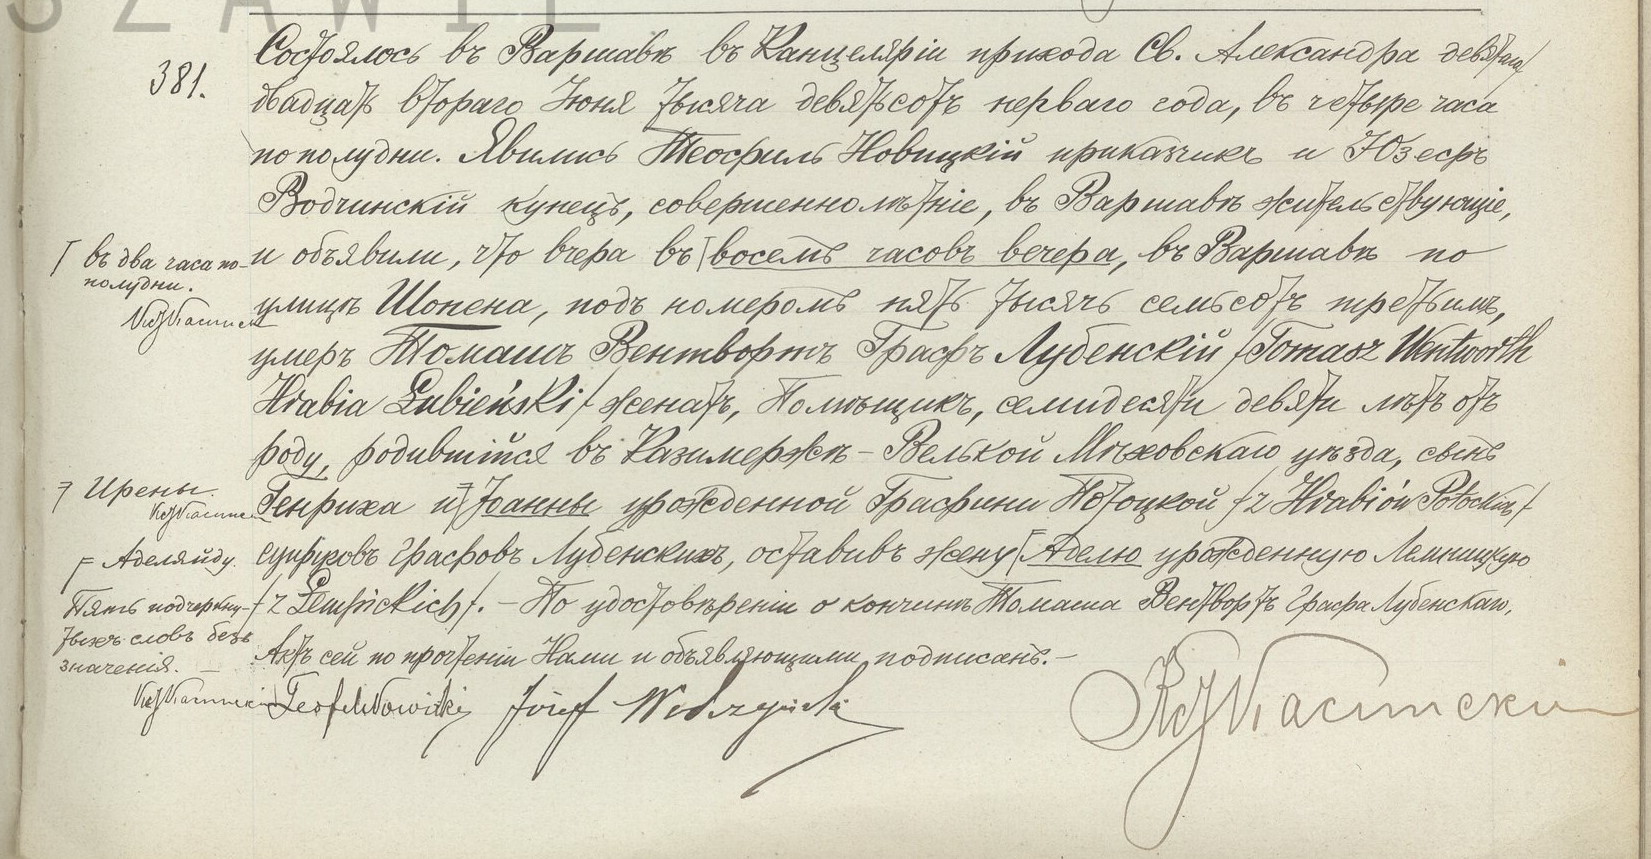 SZAWIE
381.
Состоялось въ Варшавѣ въ Канцеляріи прихода Св. Александра девятаго/
двадцать втораго Іюня тысяча девятьсотъ перваго года, въ четыре часа
по полудни. Явились Теофиль Новицкій приказчикъ и Юзефъ
Водчинскій купецъ, совершеннолѣтніе, въ Варшавѣ жительствующіе,
и объявили, что вчера въ восемь часовъ вечера, въ Варшавѣ по
въ два часа по-
полудни.
улицѣ Шопена, подъ номеромъ пять тысячъ семьсотъ третьимъ,
умеръ Томашъ Вентвортъ Графъ Лубенскій /Tomasz Wentworth
Hrabia Łubieński/ женатъ, Помѣщикъ, семидесяти девяти лѣтъ отъ
роду, родившійся въ Казимержѣ-Велькой Мѣховскаго уѣзда, сынъ
Ирены.
Генриха и Іоанны урожденной Графини Потоцкой /z Hrabiów Potockich/
супруговъ Графовъ Лубенскихъ, оставивъ жену Аделю урожденную Лемпицкую
Аделяйду.
/z Łempickich/. - По удостовѣреніи о кончинѣ Томаша Вентвортъ Графа Лубенскаго,
Пять подчеркну-
тыхъ словъ безъ
значенія. —
Актъ сей по прочтеніи Нами и объявляющими подписанъ. -
Teofil Nowicki Józef Wodczyński